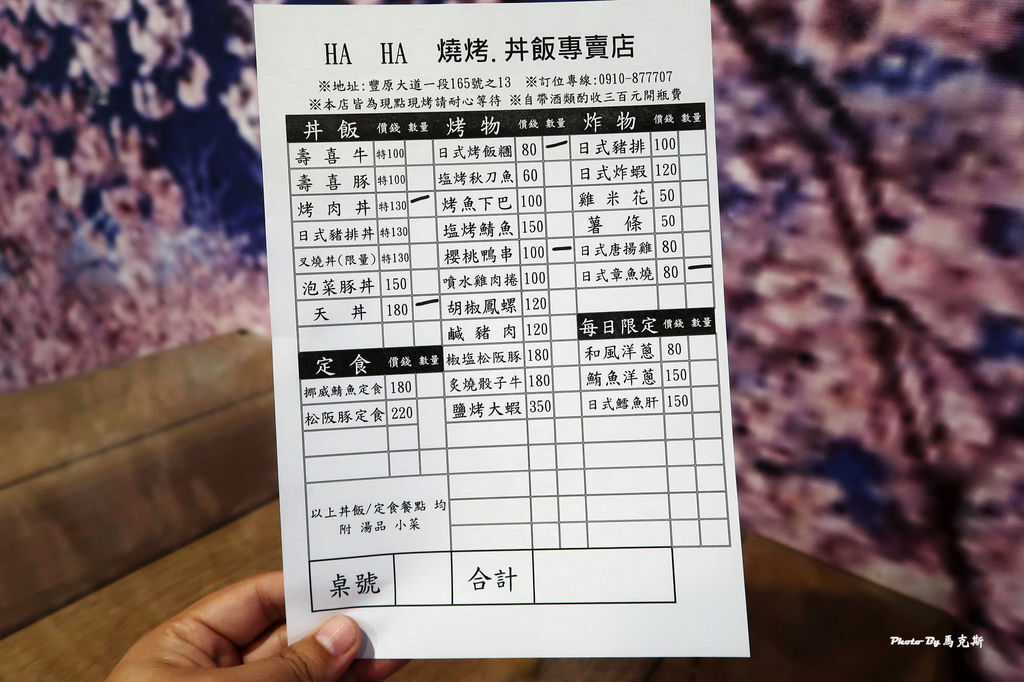 HA HA 燒烤.丼飯專賣店
※地址:豐原大道一段165號之13 ※訂位專線:0910-877707
※本店皆為現點現烤請耐心等待 ※自帶酒類酌收三百元開瓶費
丼飯 價錢 數量
壽喜牛 特100
壽喜豚 特100
烤肉丼 特130
日式豬排丼 特130
叉燒丼(限量) 特130
泡菜豚丼 150
天丼 180
定食 價錢 數量
挪威鯖魚定食 180
松阪豚定食 220
以上丼飯/定食餐點 均
附 湯品 小菜
烤物 價錢 數量
日式烤飯糰 80
塩烤秋刀魚 60
烤魚下巴 100
塩烤鯖魚 150
櫻桃鴨串 100
噴水雞肉捲 100
胡椒鳳螺 120
鹹豬肉 120
椒塩松阪豚 180
炙燒骰子牛 180
鹽烤大蝦 350
炸物 價錢 數量
日式豬排 100
日式炸蝦 120
雞米花 50
薯條 50
日式唐揚雞 80
日式章魚燒 80
每日限定 價錢 數量
和風洋蔥 80
鮪魚洋蔥 150
日式鱈魚肝 150
桌號 合計
Photo By 馬克斯